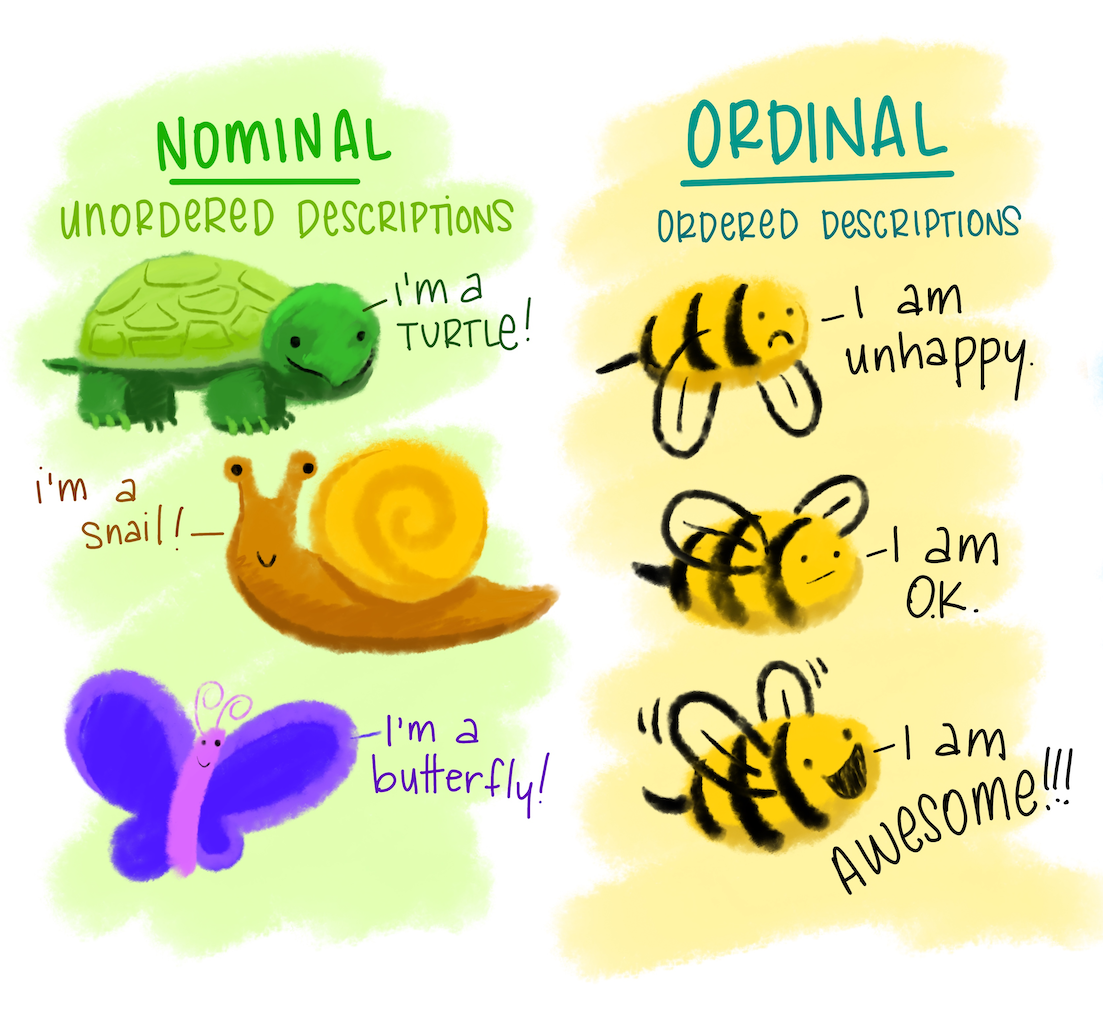 NOMINAL
UNORDERED DESCRIPTIONS
i'm a
TURTLE!
i'm a
snail!
I'm a
butterfly!
ORDINAL
ORDERED DESCRIPTIONS
I am
unhappy.
I am
O.K.
I am
AWESOME!!!